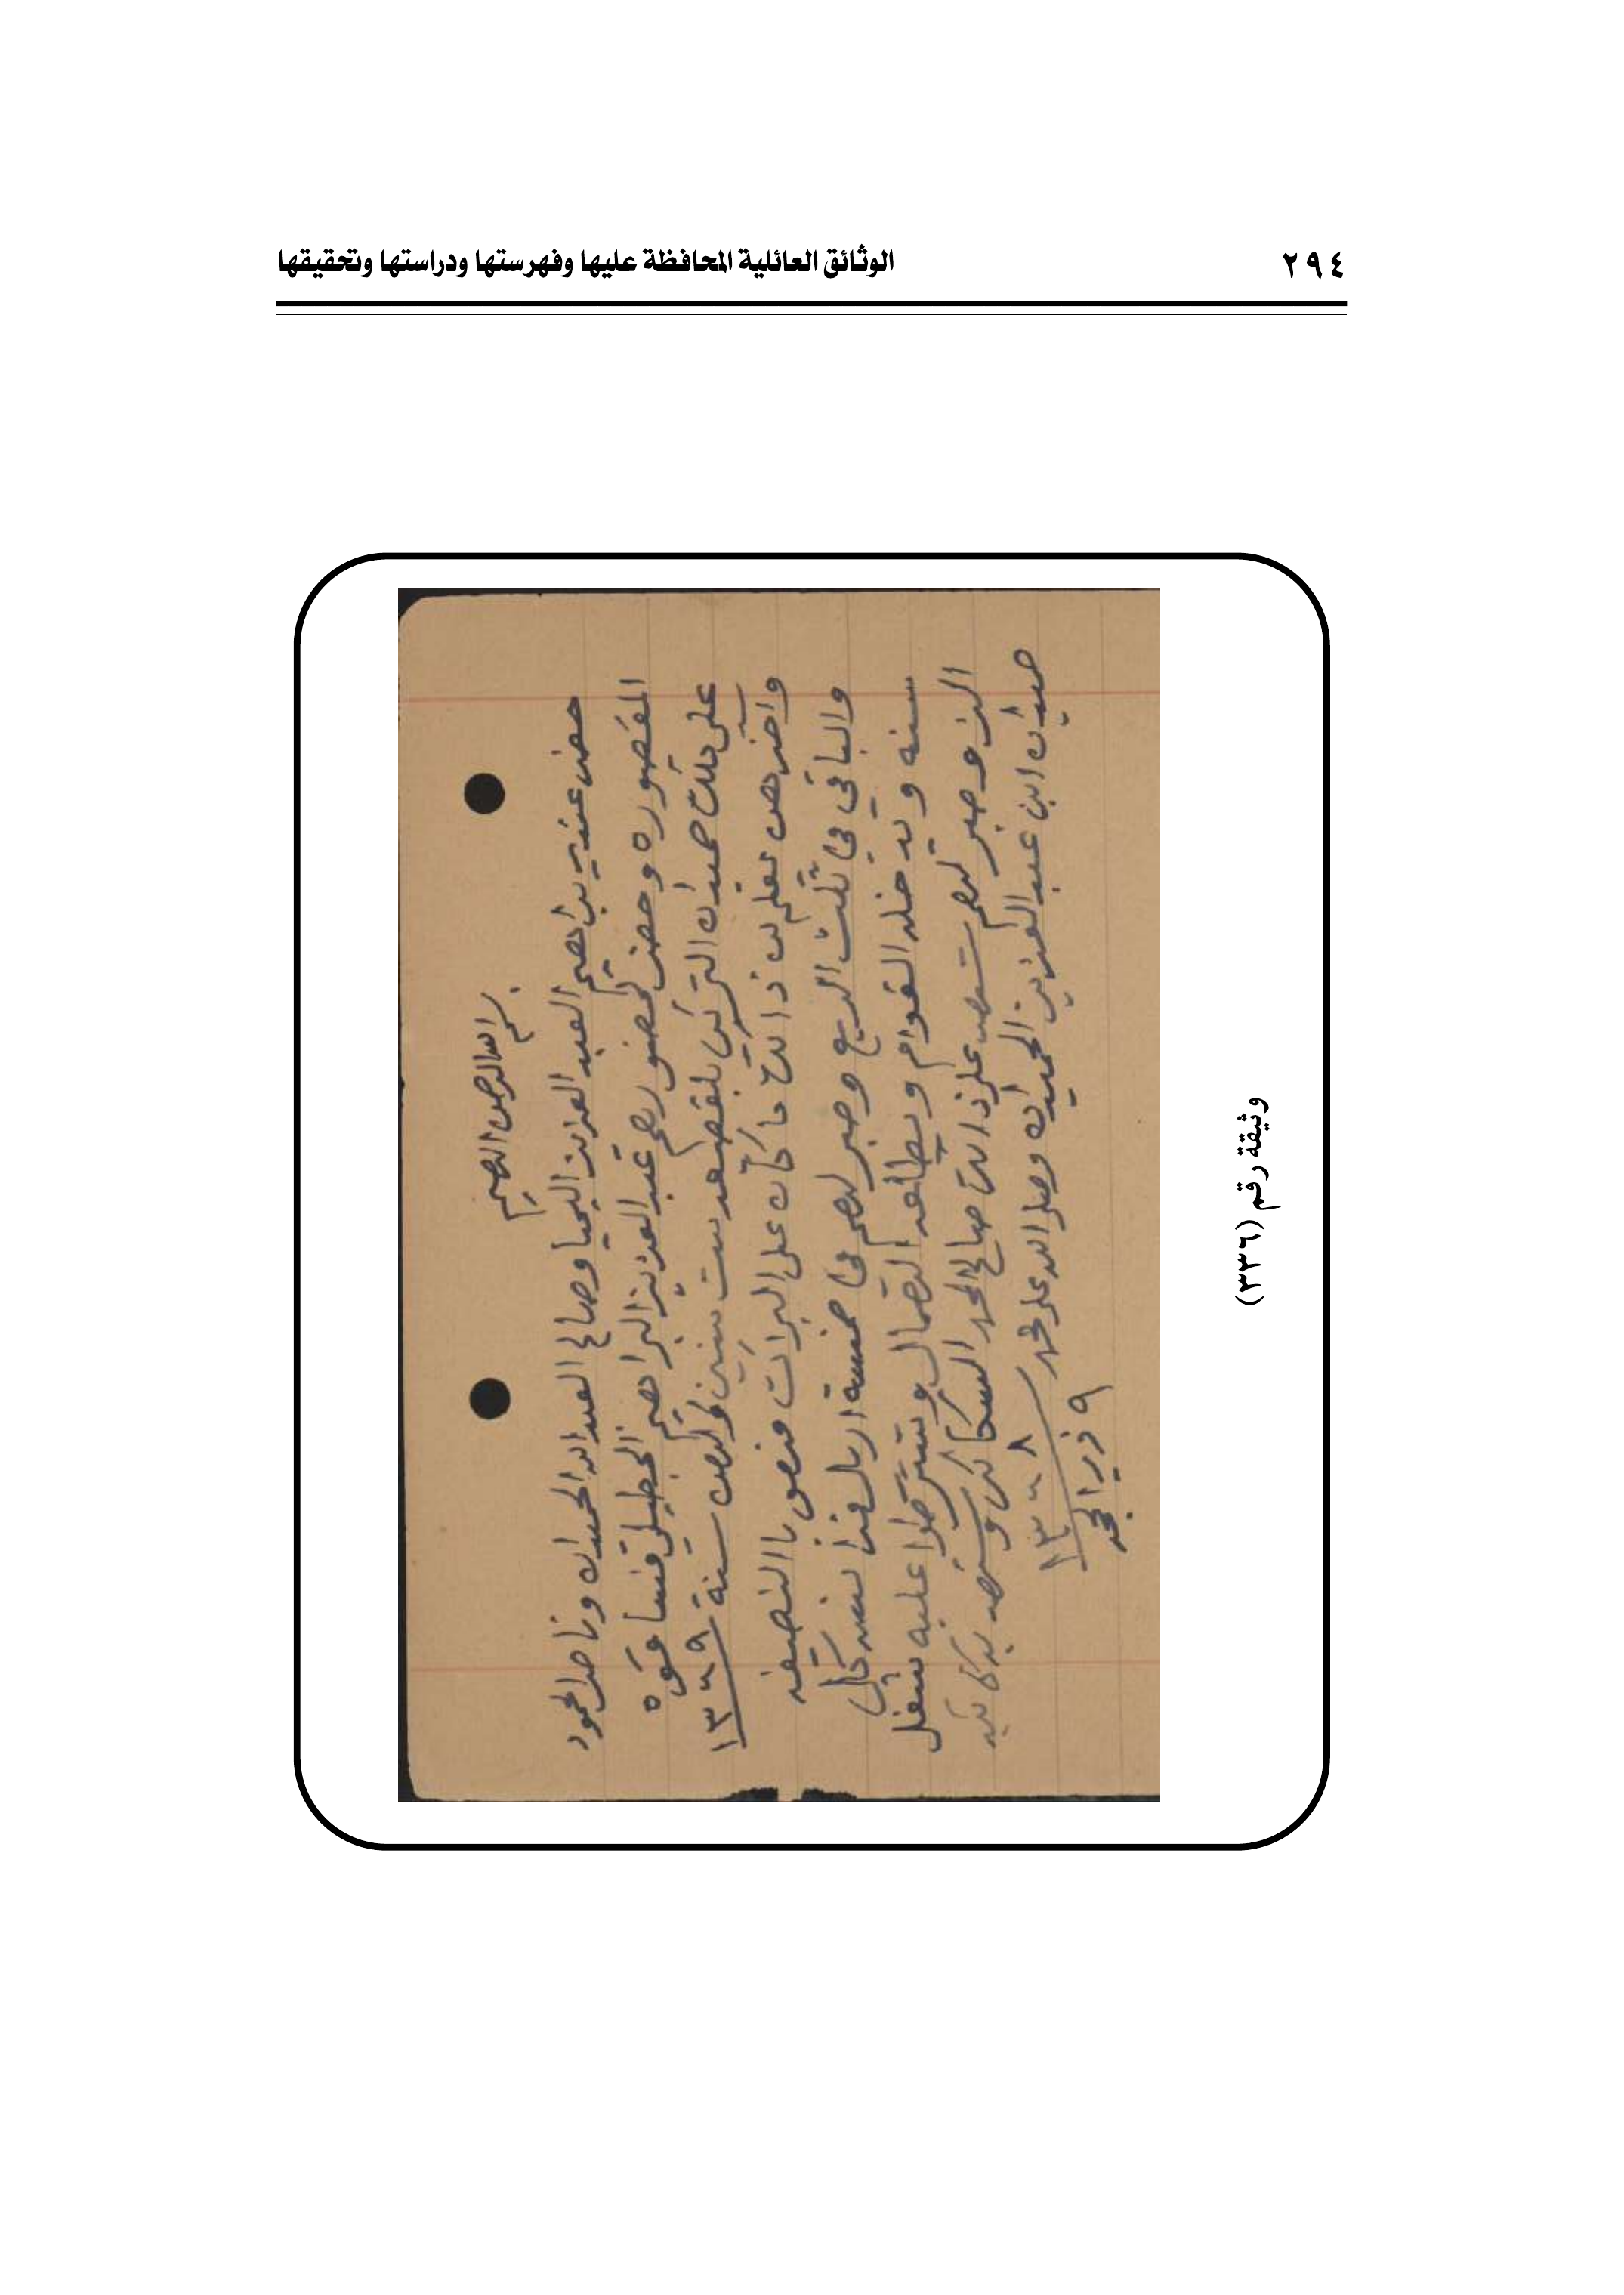 ٢٩٤
الوثائق العائلية المحافظة عليها وفهرستها ودراستها وتحقيقها
بسم الله الرحمن الرحيم
حضر عندي براهيم العبد العزيز اليحيا وصالح العبد الله الحميدان وناصر الحمود
المقصوره وحضر لحضورهم عبد العزيز البراهيم الجطيلي فساقوه
على ملك حميدان التركي بلقصعه ست سنين أولهن سنة ١٣٧٩
واخرهن يعلم من ذالك ما كان على البرات فهو باالنصيفه
والباقي في ثلث الربع وصبر لهم في خمسة اريل فضه كل
سنه ويدخله القوام والجمال وشترطوا عليه شغل
الزرع وصبر لهم شهد على ذالك صالح المحمد السكاكر وشهد به كاتبه
حميدان ابن عبد العزيز الحميدان وصلى الله على محمد
١٣٧٨
٩ ذي الحجه
وثيقة رقم (٣٣٦)